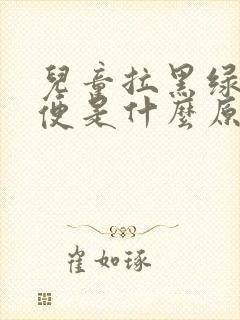 兒童拉黑绿
便是什麼原
崔如琢